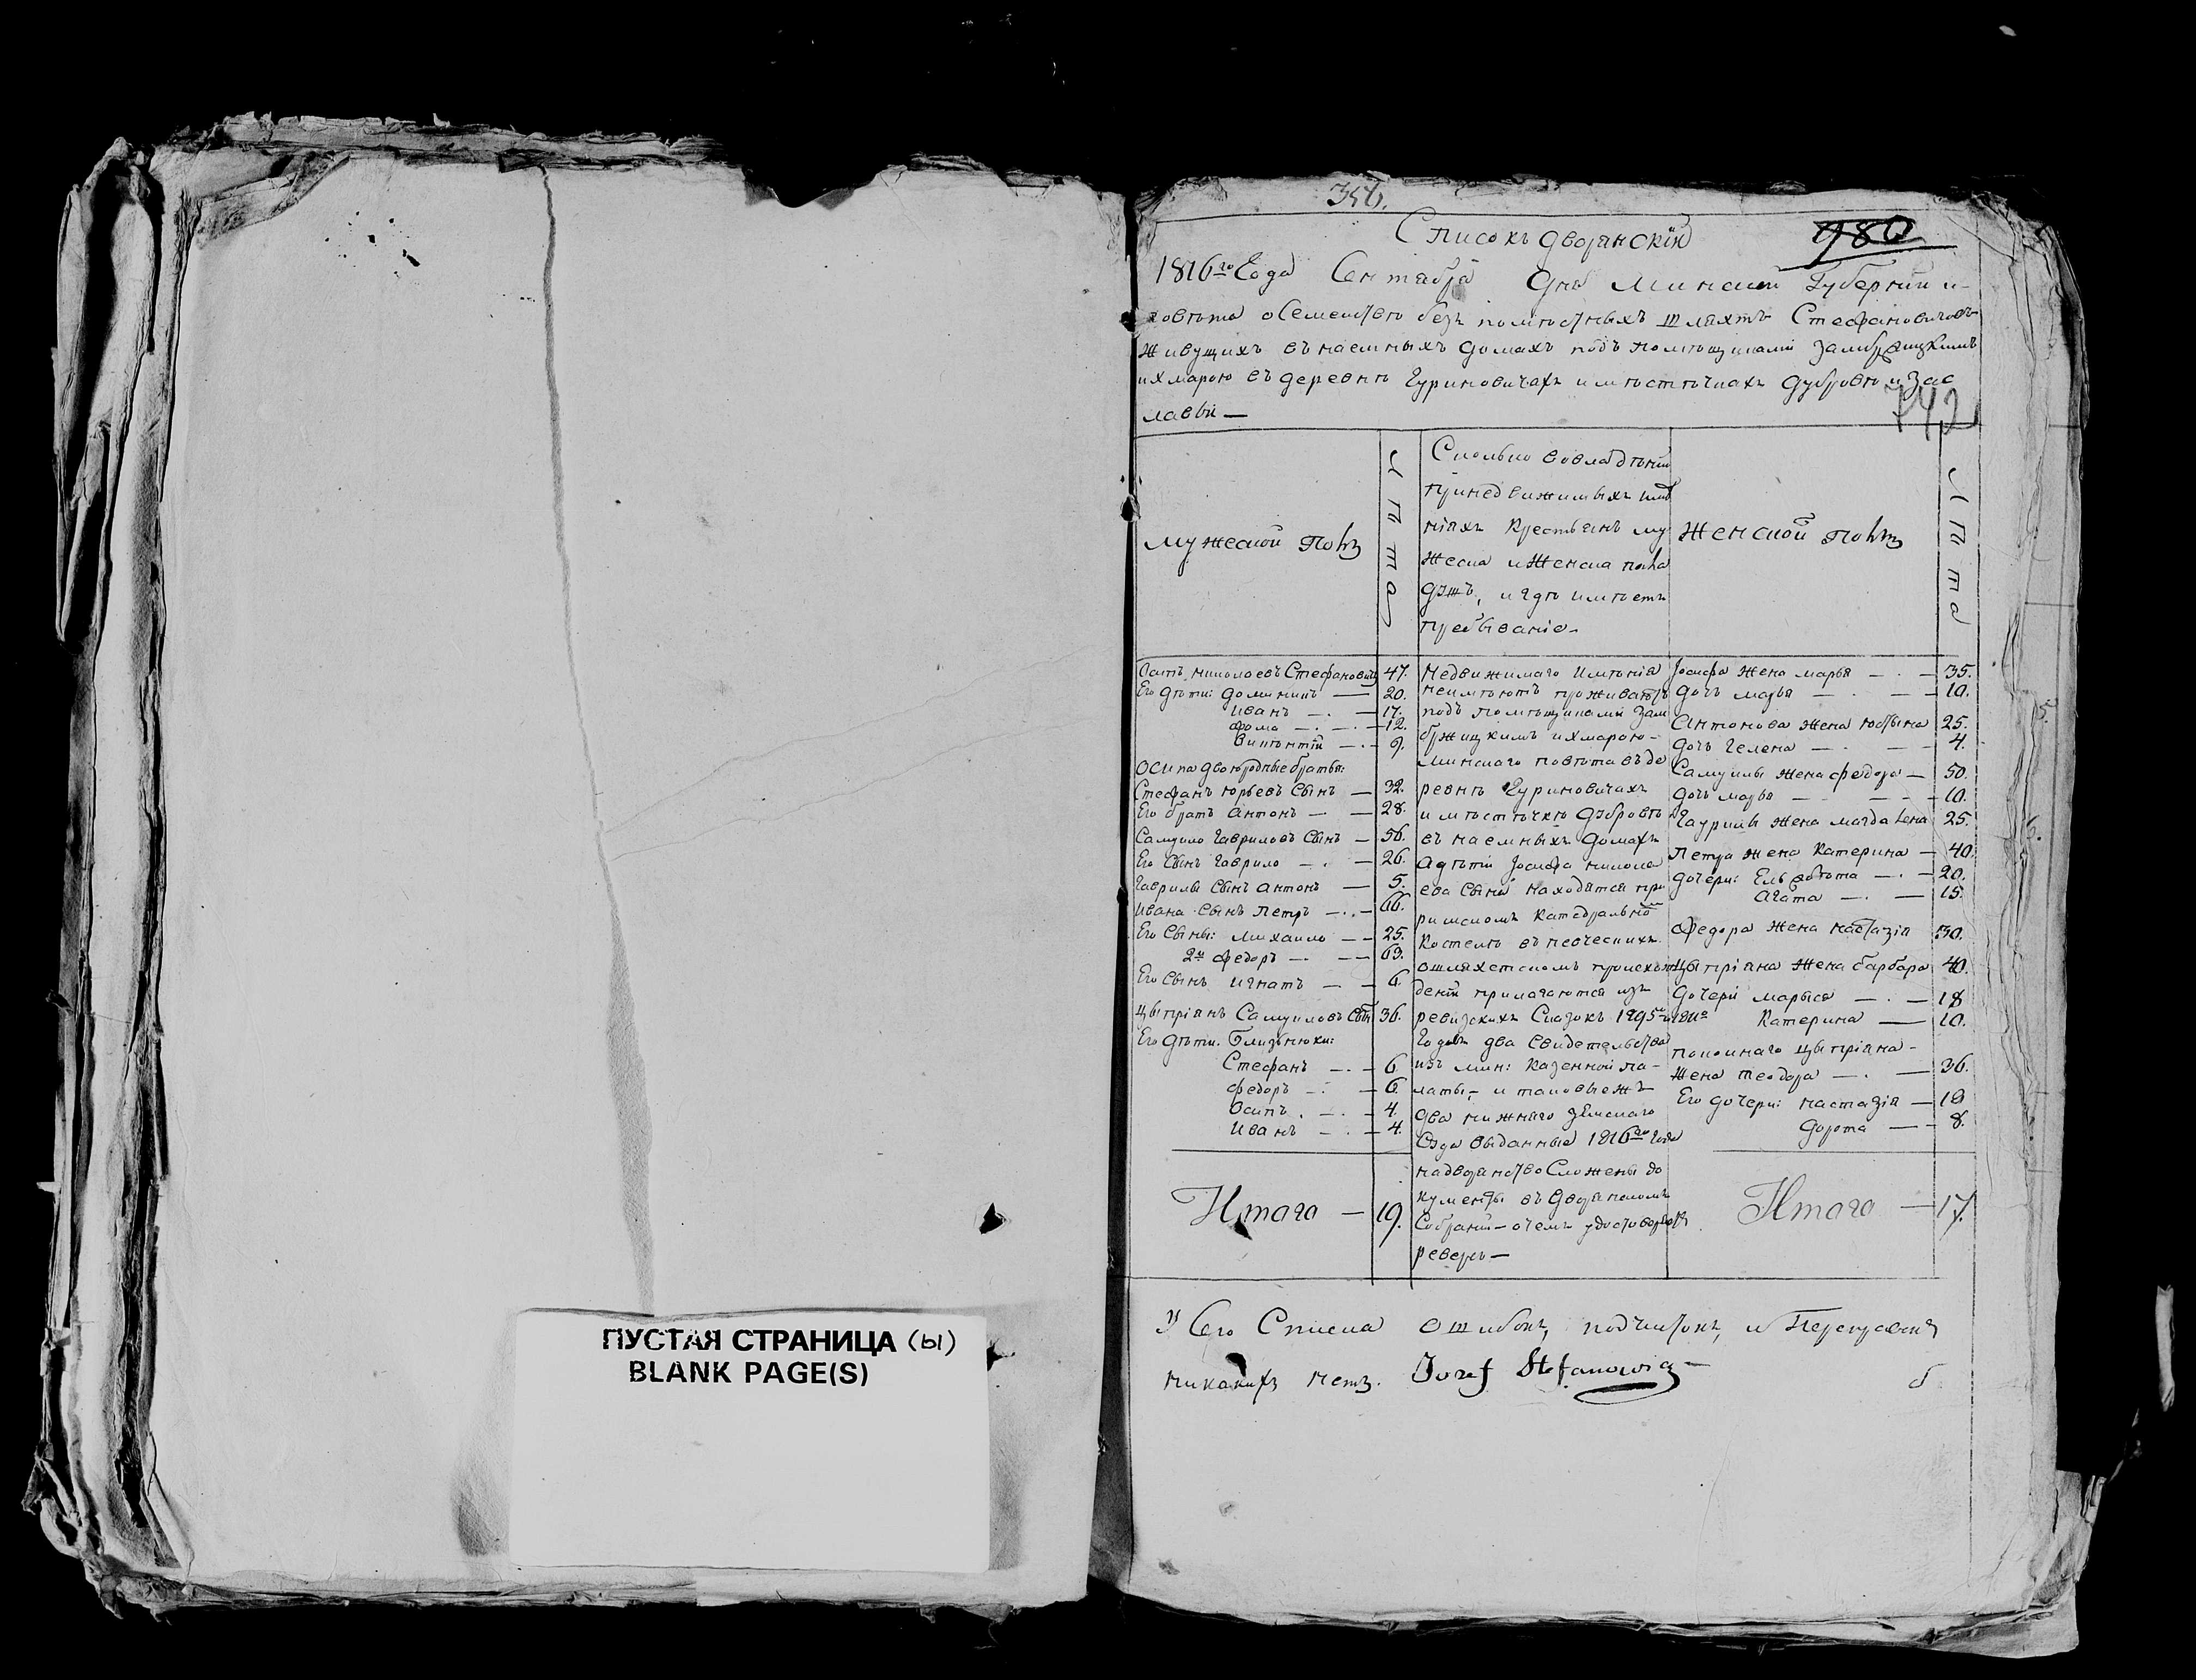 346.
Списокъ дворянскій
980
1816го Года Сентября Дня Минской Губерніи и
повѣта о Семействѣ безъ помѣстныхъ шляхтъ Стефановичовъ
Живущихъ въ наемныхъ домахъ подъ помѣщиками
и Хмарою въ деревнѣ Гуриновичахъ и мѣстѣчкахъ Дубровѣ и Зас
лавьи —
742
Мужеской Полъ
Лѣта
Сколько во владѣніи
при недвижимыхъ имѣ
ніяхъ Крестьянъ му
жеска и Женска пола
душъ, и гдѣ имѣетъ
пребываніе.
Женской Полъ
Лѣта
Осипъ Николаевъ Стефановичъ 47.
Его дѣти: Доминикъ — 20.
Иванъ — 17.
Фома — 12.
Викентій — 9.
Осипа двоюродные братья:
Стефанъ Юрьевъ Сынъ — 32.
Его братъ Антонъ — 28.
Самуило Гавриловъ Сынъ — 56.
Его Сынъ Гаврило — 26.
Гаврилы Сынъ Антонъ — 5.
Ивана Сынъ Петръ — 66.
Его Сыны: Михаило — 25.
2й Федоръ — 63.
Его Сынъ Игнатъ — 6.
Цыпріянъ Самуиловъ Сынъ 36.
Его Дѣти. Близнюки:
Стефанъ — 6
Федоръ — 6.
Осипъ — 4.
Иванъ — 4.
Итого — 19.
Недвижимаго Имѣнія
неимѣютъ проживаютъ
подъ помѣщиками Зам
бржицкимъ и Хмарою —
Минскаго повѣта въ де
ревнѣ Гуриновичахъ
и мѣстѣчкѣ Дубровѣ
въ наемныхъ Домахъ
А дѣти Іосифа Никола
ева Сына находятся при
римскомъ Катедральномъ
Костелѣ въ
о шляхетскомъ происхож
деніи прилагаются изъ
ревизскихъ Сказокъ 1795го и 1811го
Годовъ два Свидетельства
изъ Мин: Казенной па-
латы, и таковые жъ
два нижняго Земскаго
Суда Выданные 1816го Года
на дворянство Сложены до
кументы въ Дворянскомъ
Собраніи — о чемъ
реверъ —
Іосифа Жена Марья — 35.
Дочь Марья — 10.
Антонова Жена Юстына 25.
Дочь Гелена — 4.
Самуилы Жена Федора — 50.
Дочь Марья — 10.
Гаурилы Жена Магдалена 25.
Петра Жена Катерина — 40.
Дочери: Ельзбѣта — 20.
Агата — 15.
Федора Жена Настазія 50.
Цыпріяна Жена Барбара 40.
Дочери Марыся — 18
Катерина — 10.
Покойнаго Цыпріяна —
Жена Теодора — 36.
Его дочери: Настазія — 12
Дорота — 8.
Итого — 17.
У Сего Списка Ошибокъ, подчистокъ, и Переправокъ
никакихъ Нетъ. Jozef Stefanowicz —
ПУСТАЯ СТРАНИЦА (Ы)
BLANK PAGE(S)